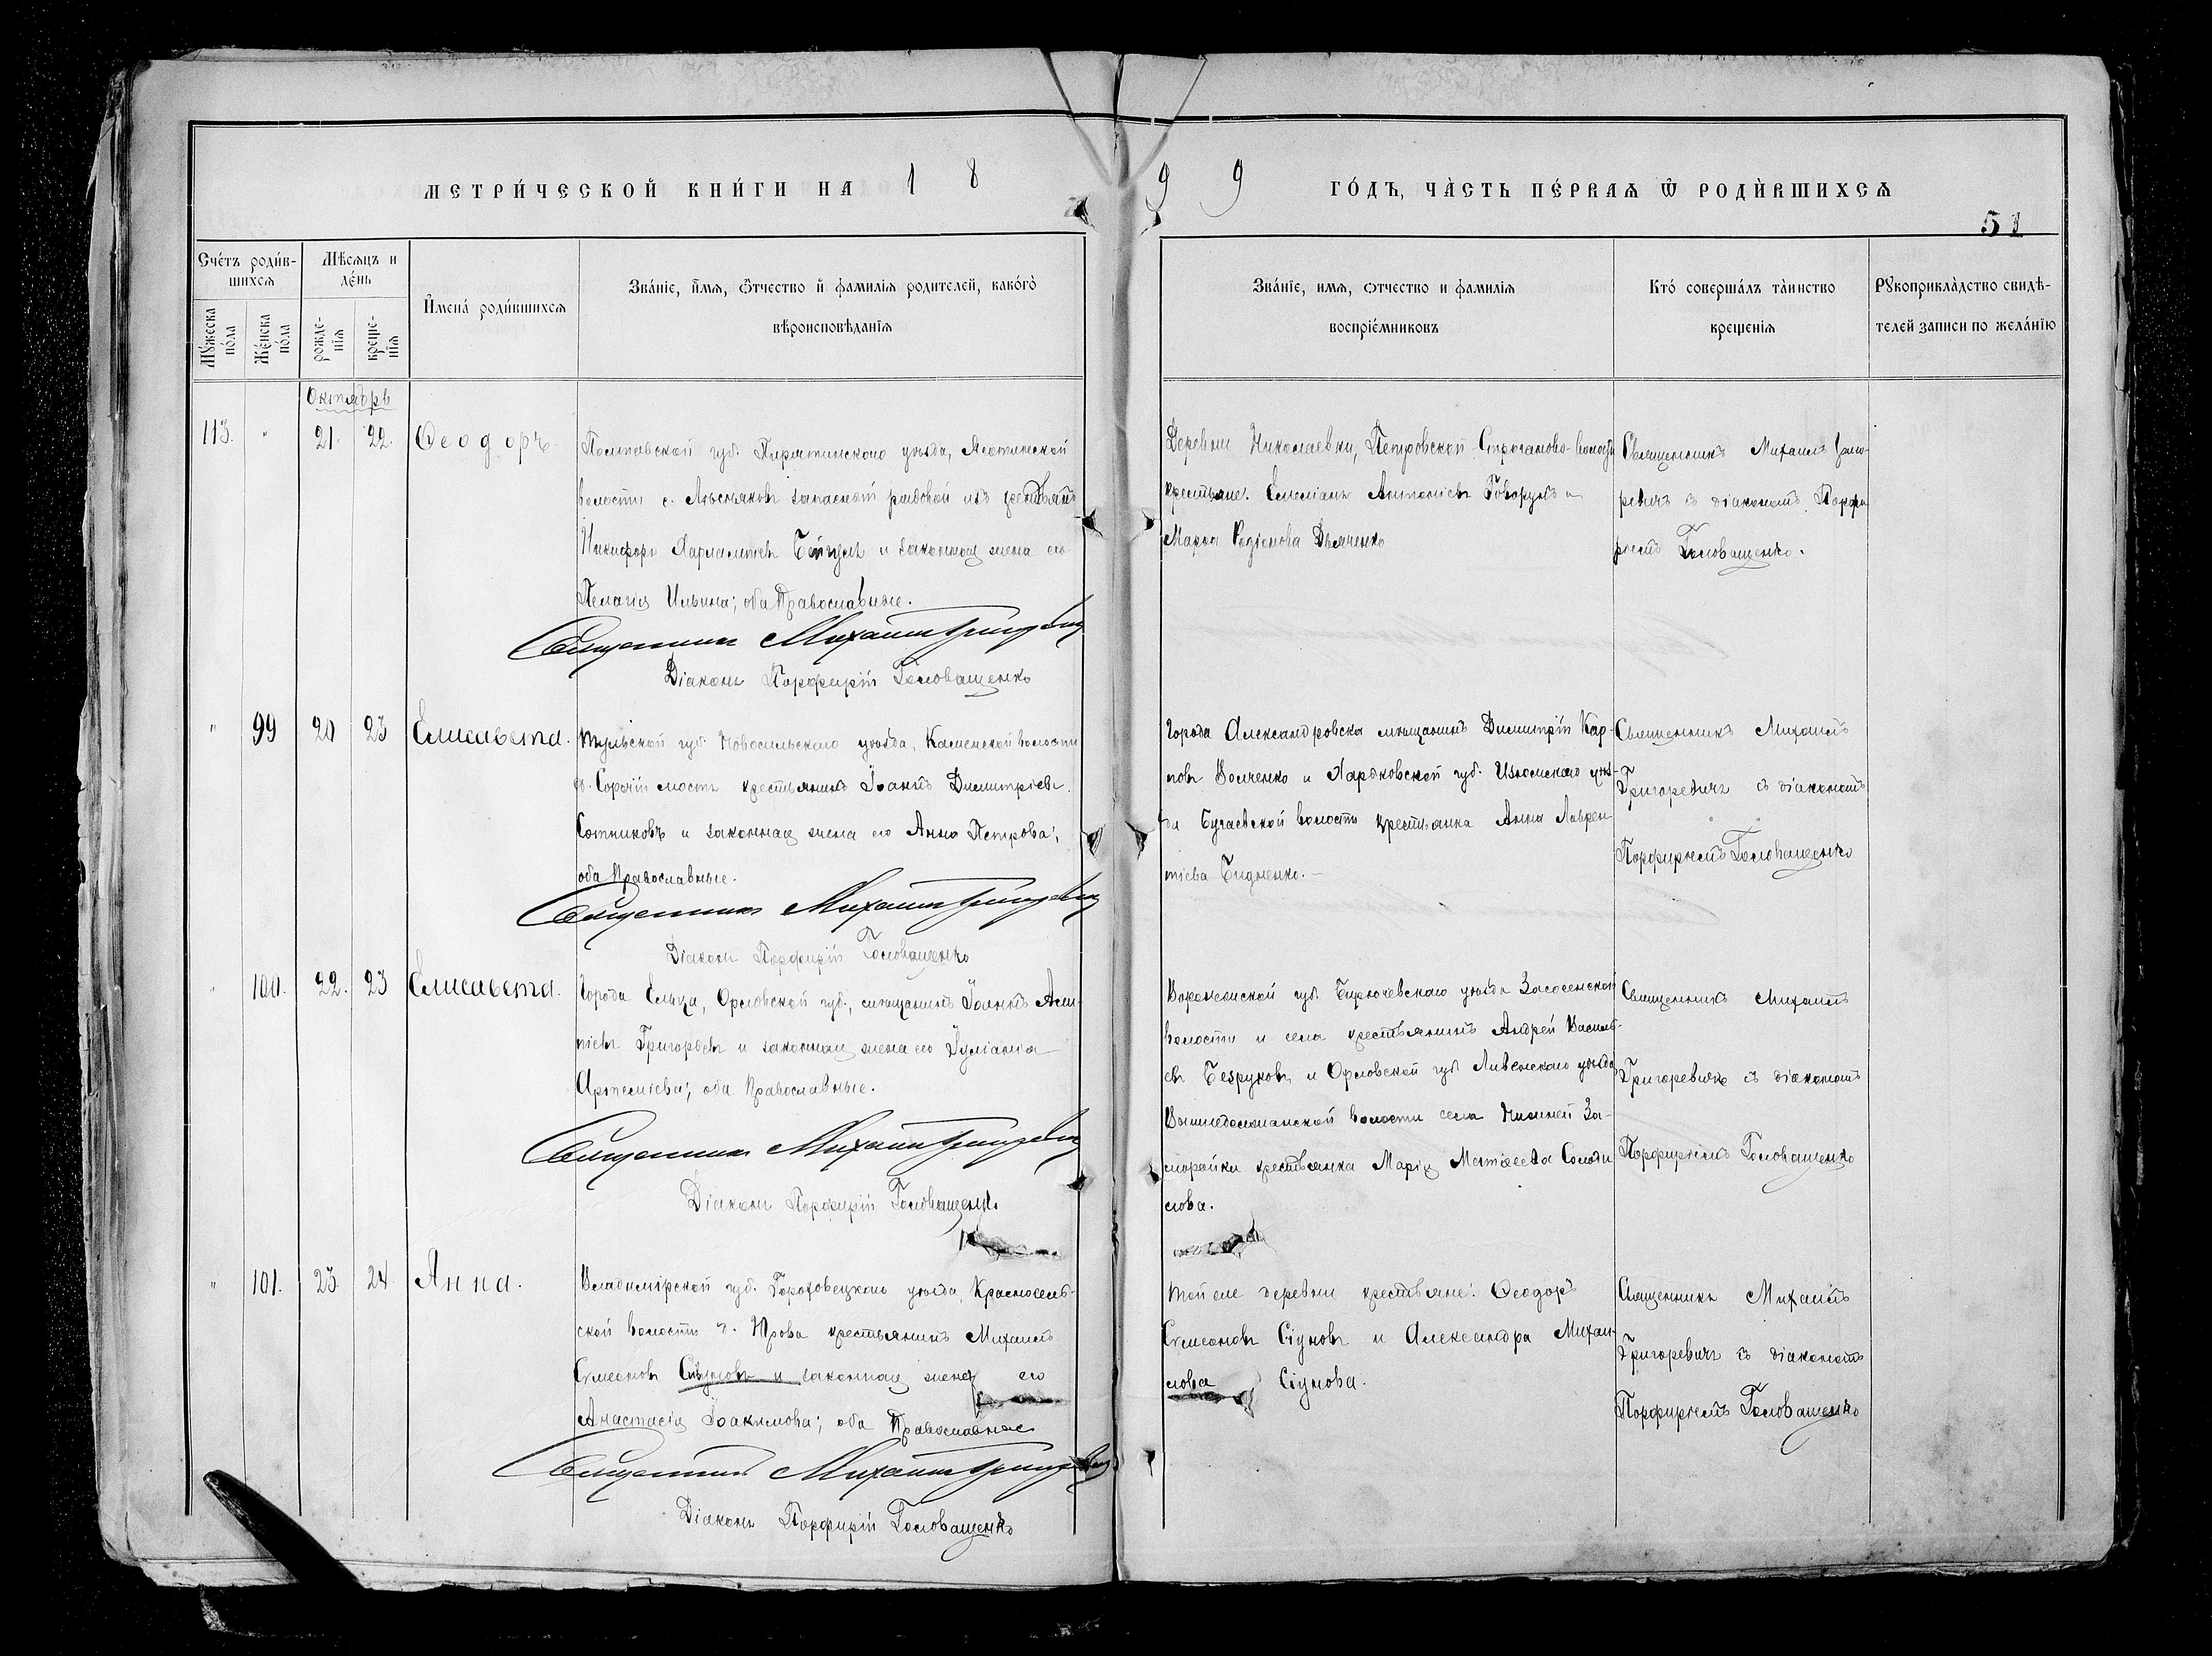 МЕТРИ́ЧЕСКОЙ КНИ́ГИ НА 18
99 ГО́ДЪ, ЧА̀СТЬ ПЕ́РВАѦ Ѿ РОДИ́ВШИХСѦ
51
Сче́тъ роди́в-
шихсѧ
Мѣ́сѧцъ и
де́нь
Мꙋ́жеска
по́ла
Же́нска
по́ла
рожде-
нїѧ
креще-
нїѧ
И҆мена̀ роди́вшихсѧ
Зва́нїе, и҆́мѧ, ѻ҆́тчество и҆ фамилїѧ родителей, како́гѡ
вѣроисповѣ́данїѧ
Зва́нїе, имѧ, ѻтчество и фамилїѧ
воспрїе́мниковъ
Кто̀ соверша́лъ та́инство
креще́нїѧ
Рꙋкоприкла́дство свидѣ́-
телей записи по жела́нїю
Октябрь
113. " 21. 22. Ѳеодоръ.
Полтавской губ. Пирятинскаго уѣзда, Яготинской
волости с. запасной рядовой изъ крестьянъ
Никифоръ Харлампіевъ и законная жена его
Пелагія Ильина; оба Православные.
Священникъ Михаилъ Григоревичъ
Діаконъ Порфирій Головащенко
Деревни Николаевки, Петровской волости
крестьяне: Емеліанъ Антоніевъ Говорунъ и
Марѳа Родіонова Дьяченко
Священникъ Михаилъ Григо-
ревичъ съ діакономъ Порфи
ріемъ Головащенко.
" 99 20 23 Елисавета.
Тульской губ. Новосильскаго уѣзда, Каменской волости
д. Сорочій мостъ крестьянинъ Іоаннъ Димитріевъ
Сотниковъ и законная жена его Анна Петрова;
оба Православные.
Священникъ Михаилъ Григоревичъ
Діаконъ Порфирій Головащенко
Города Александровска мѣщанинъ Димитрій Кар-
повъ Волченко и Харьковской губ. Изюмскаго уѣз-
да Бугаевской волости крестьянка Анна Лаврен
тіева Бидненко. —
Священникъ Михаилъ
Григоревичъ съ діакономъ
Порфиріемъ Головащенко
" 100. 22. 23 Елисавета.
Города Ельца, Орловской губ., мѣщанинъ Іоаннъ
Григорьевъ и законная жена его Іуліанія
Артеміева; оба Православные.
Священникъ Михаилъ Григоревичъ
Діаконъ Порфирій Головащенко.
Воронежской губ. Бирюческаго уѣзда Засосенской
волости и села крестьянинъ Андрей Василь-
евъ Безруковъ и Орловской губ. Ливенскаго уѣзда
волости села Нижней За-
крестьянка Марія Матѳеева Солоди
лова.
Священникъ Михаилъ
Григоревичъ съ діакономъ
Порфиріемъ Головащенко
" 101. 23. 24. Анна.
Владимірской губ. Гороховецкаго уѣзда, Красносель-
ской волости д. Юрова крестьянинъ Михаилъ
Сѵмеоновъ и законная жена его
Анастасія Іоакимова; оба Православные
Священникъ Михаилъ Григоревичъ
Діаконъ Порфирій Головащенко
Той еже деревни крестьяне: Ѳеодоръ
Сѵмеоновъ Сіуновъ и Александра Михаи-
лова Сіунова.
Священникъ Михаилъ
Григоревичъ съ діакономъ
Порфиріемъ Головащенко